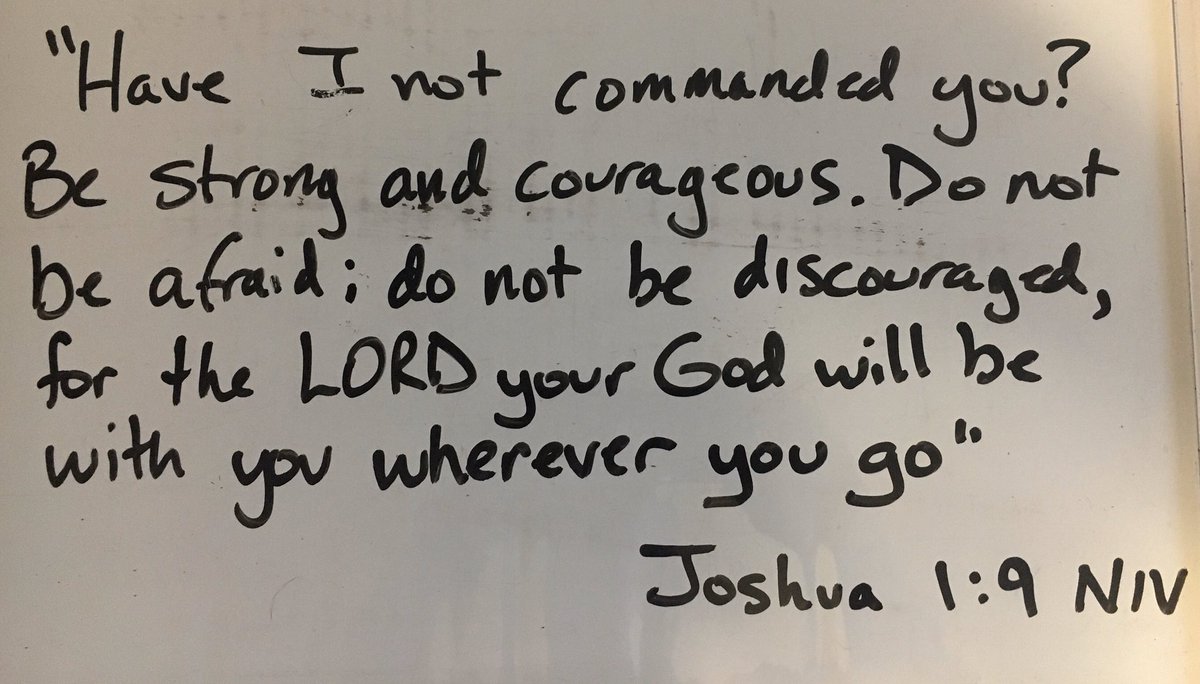 "Have I not commanded you?
Be strong and courageous. Do not
be afraid; do not be discouraged,
for the LORD your God will be
with you wherever you go"
Joshua 1:9 NIV